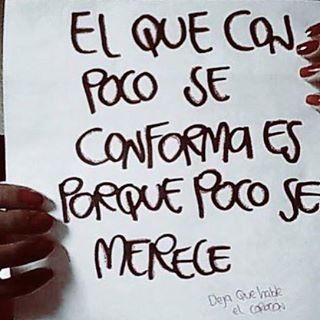 EL QUE CON
POCO SE
CONFORMA ES
PORQUE POCO SE
MERECE
Deja Que hable
el corazón